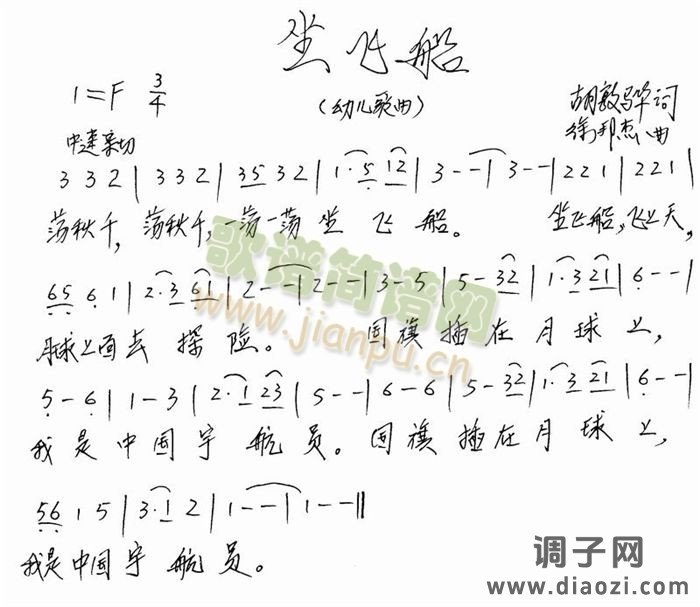 坐飞船
1=F 3/4
(幼儿歌曲)
胡敦骅词
徐邦杰曲
中速 亲切
3 3 2 | 3 3 2 | 35 3 2 | 1· 5 12 | 3 - - | 3 - - | 2 2 1 | 2 2 1 |
荡秋千, 荡秋千, 一荡一荡 坐 飞 船。 坐飞船, 飞上天,
65 6 1 | 2· 3 61 | 2 - - | 2 - - | 3 - 5 | 5 - 32 | 1· 3 21 | 6 - - |
月球上面去 探 险。 国 旗 插 在 月 球 上,
5 - 6 | 1 - 3 | 2· 1 23 | 5 - - | 6 - 6 | 5 - 32 | 1· 3 21 | 6 - - |
我 是 中 国 宇 航 员。 国 旗 插 在 月 球 上,
56 1 5 | 3· 1 2 | 1 - - | 1 - - ‖
我是中国宇 航 员。
歌谱简谱网
www.jianpu.cn
调子网
www.diaozi.com